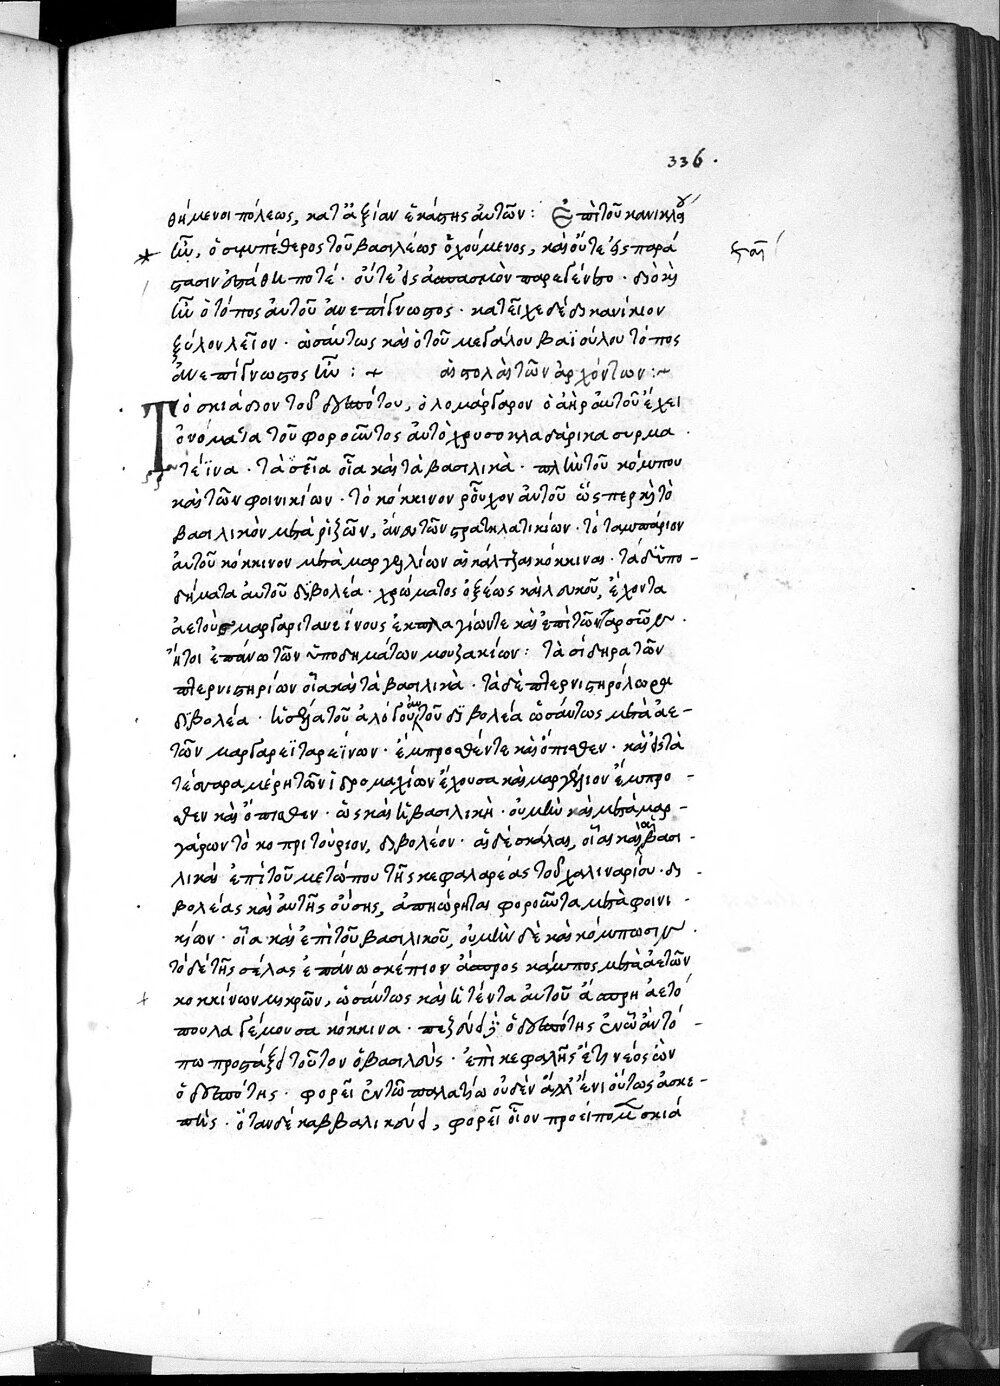 336.
θήμενοι πόλεως, κατ' ἀξίαν ἑκάστης αὐτῶν: Ὁ ἐπὶ τοῦ κανικλείου
ἦν, ὁ συμπένθερος τοῦ βασιλέως ὁ χούμενος, καὶ οὔτε εἰς παρά
στασιν ἐστάθη ποτέ· οὔτε εἰς ἀσπασμὸν παρεγένετο· διὸ καὶ
ἦν ὁ τόπος αὐτοῦ ἀνεπίγνωστος· κατεῖχε δὲ δικανίκιον
ξύλον λεῖον· ὡσαύτως καὶ ὁ τοῦ μεγάλου βαϊούλου τόπος
ἀνεπίγνωστος ἦν: αἱ στολαὶ τῶν ἀρχόντων:
Τὸ σκιάδιον τοῦ δεσπότου, ὁλομάργαρον ὁ ἀὴρ αὐτοῦ ἔχει
ὀνόματα τοῦ φοροῦντος αὐτὸ χρυσοκλαβάρικα συρμα
τέϊνα· τὰ σεῖα οἷα καὶ τὰ βασιλικά· πλὴν τοῦ κόμπου
καὶ τῶν φοινικίων· τὸ κόκκινον ῥοῦχον αὐτοῦ ὥσπερ καὶ τὸ
βασιλικὸν μετὰ ῥιζῶν, ἄνευ τῶν στρατηλατικίων· τὸ ταμπάριον
αὐτοῦ κόκκινον μετὰ μαργελλίων αἱ κάλτζαι κόκκιναι· τὰ δὲ ὑπο-
δήματα αὐτοῦ διβολέα· χρώματος ὀξέως καὶ λευκοῦ, ἔχοντα
ἀετοὺς μαργαριταρεΐνους ἐκ πλαγίων τε καὶ ἐπὶ τῶν ταρσῶν
ἤτοι ἐπάνω τῶν ὑποδημάτων μουζακίων: τὰ σίδηρα τῶν
πτερνιστηρίων οἷα καὶ τὰ βασιλικὰ· τὰ δὲ πτερνιστηρόλωρα
διβολέα· ἡ σέλλα τοῦ ἀλόγου αὐτοῦ διβολέα ὡσαύτως μετὰ ἀε-
τῶν μαργαρεϊταρεΐνων· ἔμπροσθέν τε καὶ ὄπισθεν· καὶ εἰς τὰ
τέσσαρα μέρη τῶν ἱδρομαχίων ἔχουσα καὶ μαργέλλιον ἔμπρο-
σθεν καὶ ὄπισθεν· ὡς καὶ ἡ βασιλική· οὐ μὴν καὶ μετὰ μαρ-
γάρων τὸ κοπριτούριον, διβολέον· αἱ δὲ σκάλαι, οἷαι καὶ αἱ βασι-
λικαί ἐπὶ τοῦ μετώπου τῆς κεφαλαρέας τοῦ χαλιναρίου· δι
βολέας καὶ αὐτῆς οὔσης, ἀπῃώρηται φοροῦντα μετὰ φοινι-
κίων· οἷα καὶ ἐπὶ τοῦ βασιλικοῦ, οὐ μὴν δὲ καὶ κόμπωσιν
τὸ δὲ τῆς σέλας ἐπάνω σκέπιον ἄσπρος κάμπος μετὰ ἀετῶν
κοκκίνων μικρῶν, ὡσαύτως καὶ ἡ τέντα αὐτοῦ ἄσπρη ἀετό
πουλα γέμουσα κόκκινα· πεζεύει ὁ δεσπότης ἐν ᾧ ἂν τό-
πῳ προστάξει τοῦτον ὁ βασιλεύς· ἐπὶ κεφαλῆς ἔτι νέος ὢν
ὁ δεσπότης· φορεῖ ἐν τῷ παλατίῳ οὐδὲν ἀλλ' ἔνι οὕτως ἀσκε-
πής· ὅταν δὲ καββαλικεύει, φορεῖ οἷον προείπομεν σκιά